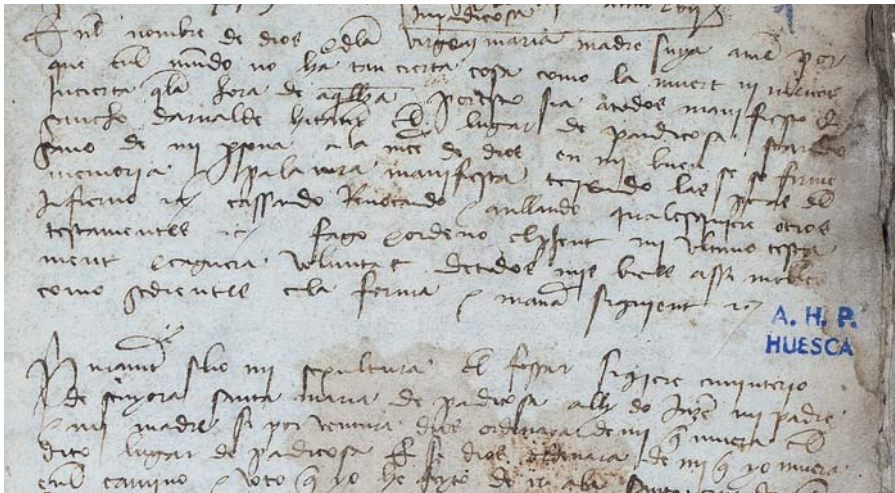 En el nombre de dios e dela virgen maria madre suya amen por
que enel mundo no ha tan cierta cosa como la muert ni menos
incierta q la hora de aqlla por esto sia a todos manifiesto q
sancho darnalde habitant en el lugar de pandicosa stando
sano de mi psona a la mce de dios en mi buen seso ferme
memoria palaura manifiesta temiendo las penas del
infierno cassando Reuocando e anullando qualesquiere otros
testamentes fago e ordeno el psent mi ultimo testa
ment e caguera voluntat de todos mis bienes assi mobles
como sedientes en la forma e manera siguient
A. H. P.
HUESCA
Primament slio mi sepultura el fossar siquiere ciminterio
de senyora santa maria de pandicosa alli do jazen mi padre
e mi madre si por ventura dios ordenara de mi q muera en el
dito lugar de pandicosa E si dios ordenara de mi q yo muera
enel camino e voto q yo he feyto de ir a la